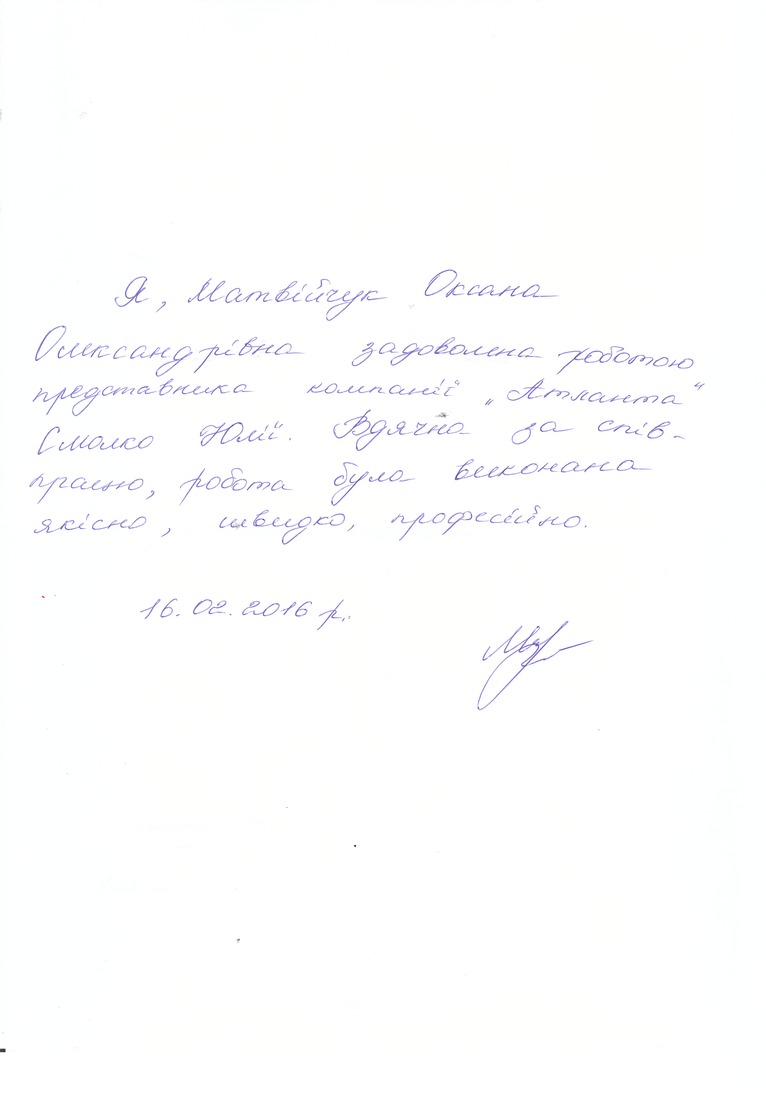 Я, Матвійчук Оксана
Олександрівна задоволена роботою
представника компанії „Атланта“
Смолко Юлії. Вдячна за спів-
працю, робота була виконана
якісно, швидко, професійно.
16.02.2016 р.